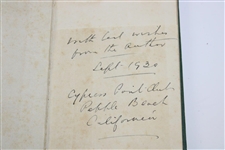 with best wishes
from the author
Sept - 1930
Cypress Point Club
Pebble Beach
California